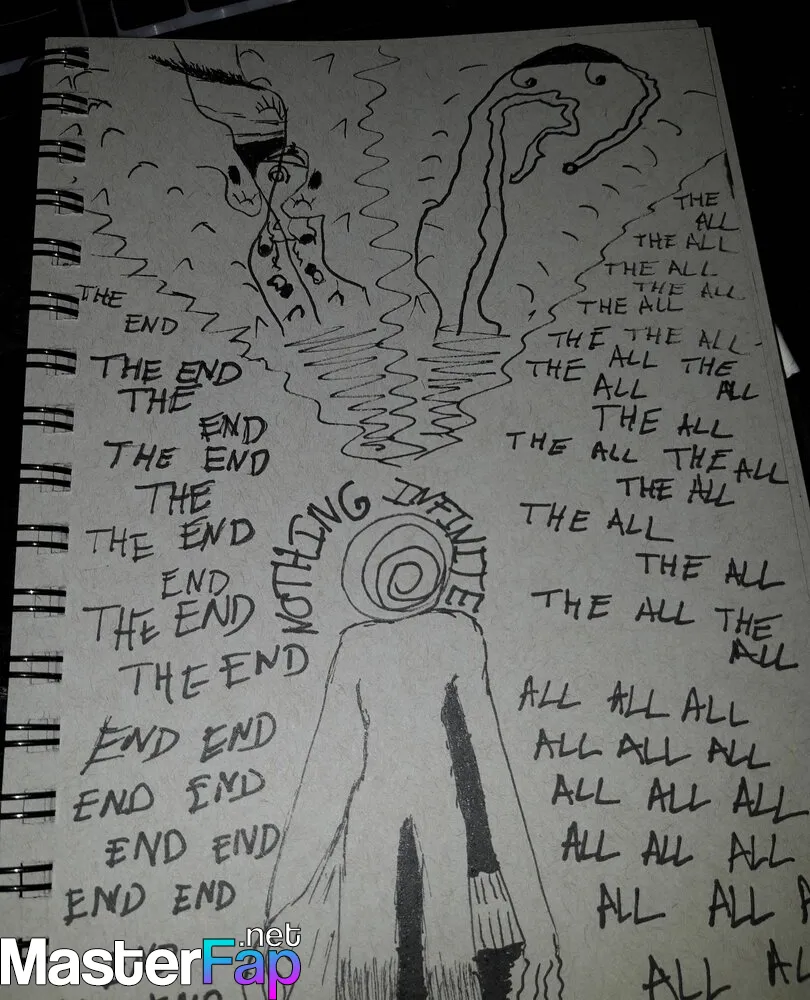 THE
END
THE END
THE
END
THE END
THE
THE END
END
THE END
THE END
END END
END END
END END
END END
END
NOTHING INFINITE
THE
ALL
THE ALL
THE ALL
THE ALL
THE ALL
THE THE ALL
THE ALL THE
ALL ALL
THE ALL
THE ALL THE ALL
THE ALL
THE ALL
THE ALL
THE ALL THE
ALL
ALL ALL ALL
ALL ALL ALL
ALL ALL ALL
ALL ALL ALL
ALL ALL
ALL
MasterFap.net